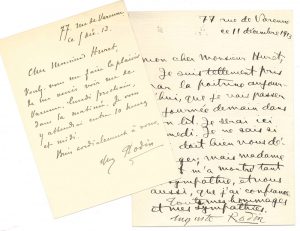 77 rue de Varenne
ce 7 déc. 13
Cher Monsieur Huret,
Voulez vous me faire le plaisir
de venir voir me
lundi prochain,
dans la matinée. Je vous
y attendrai entre 10 heures
et midi.
Bien cordialement à vous,
Aug Rodin
77 rue de Varenne
ce 11 décembre 1913
Mon cher Monsieur Huret,
Je suis tellement pris
par la poitrine aujour-
d'hui, que je vais passer
journée demain dans
lit. Je serai ici
medi. Je ne sais si
doit bien vous dé-
ger, mais madame
m'a montré tant
sympathie, et vous
aussi, que j'ai confiance
Tous mes hommages
et mes sympathies.
Auguste Rodin